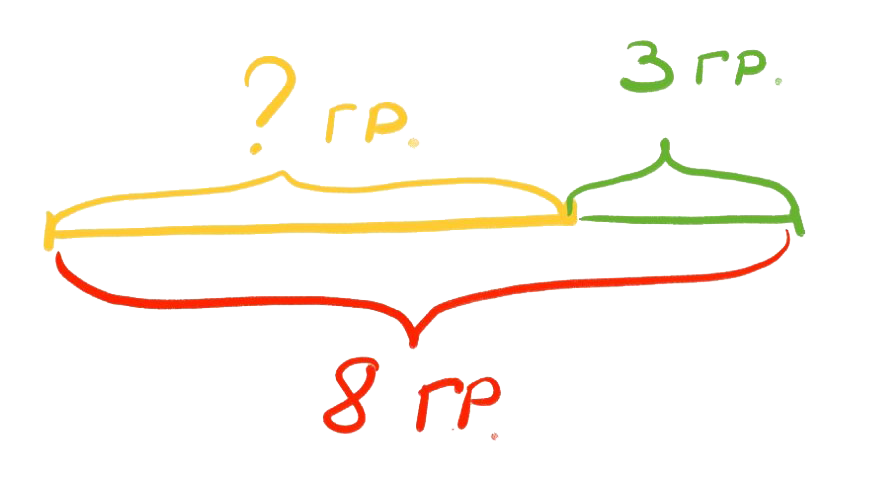 ? гр.
3 гр.
8 гр.